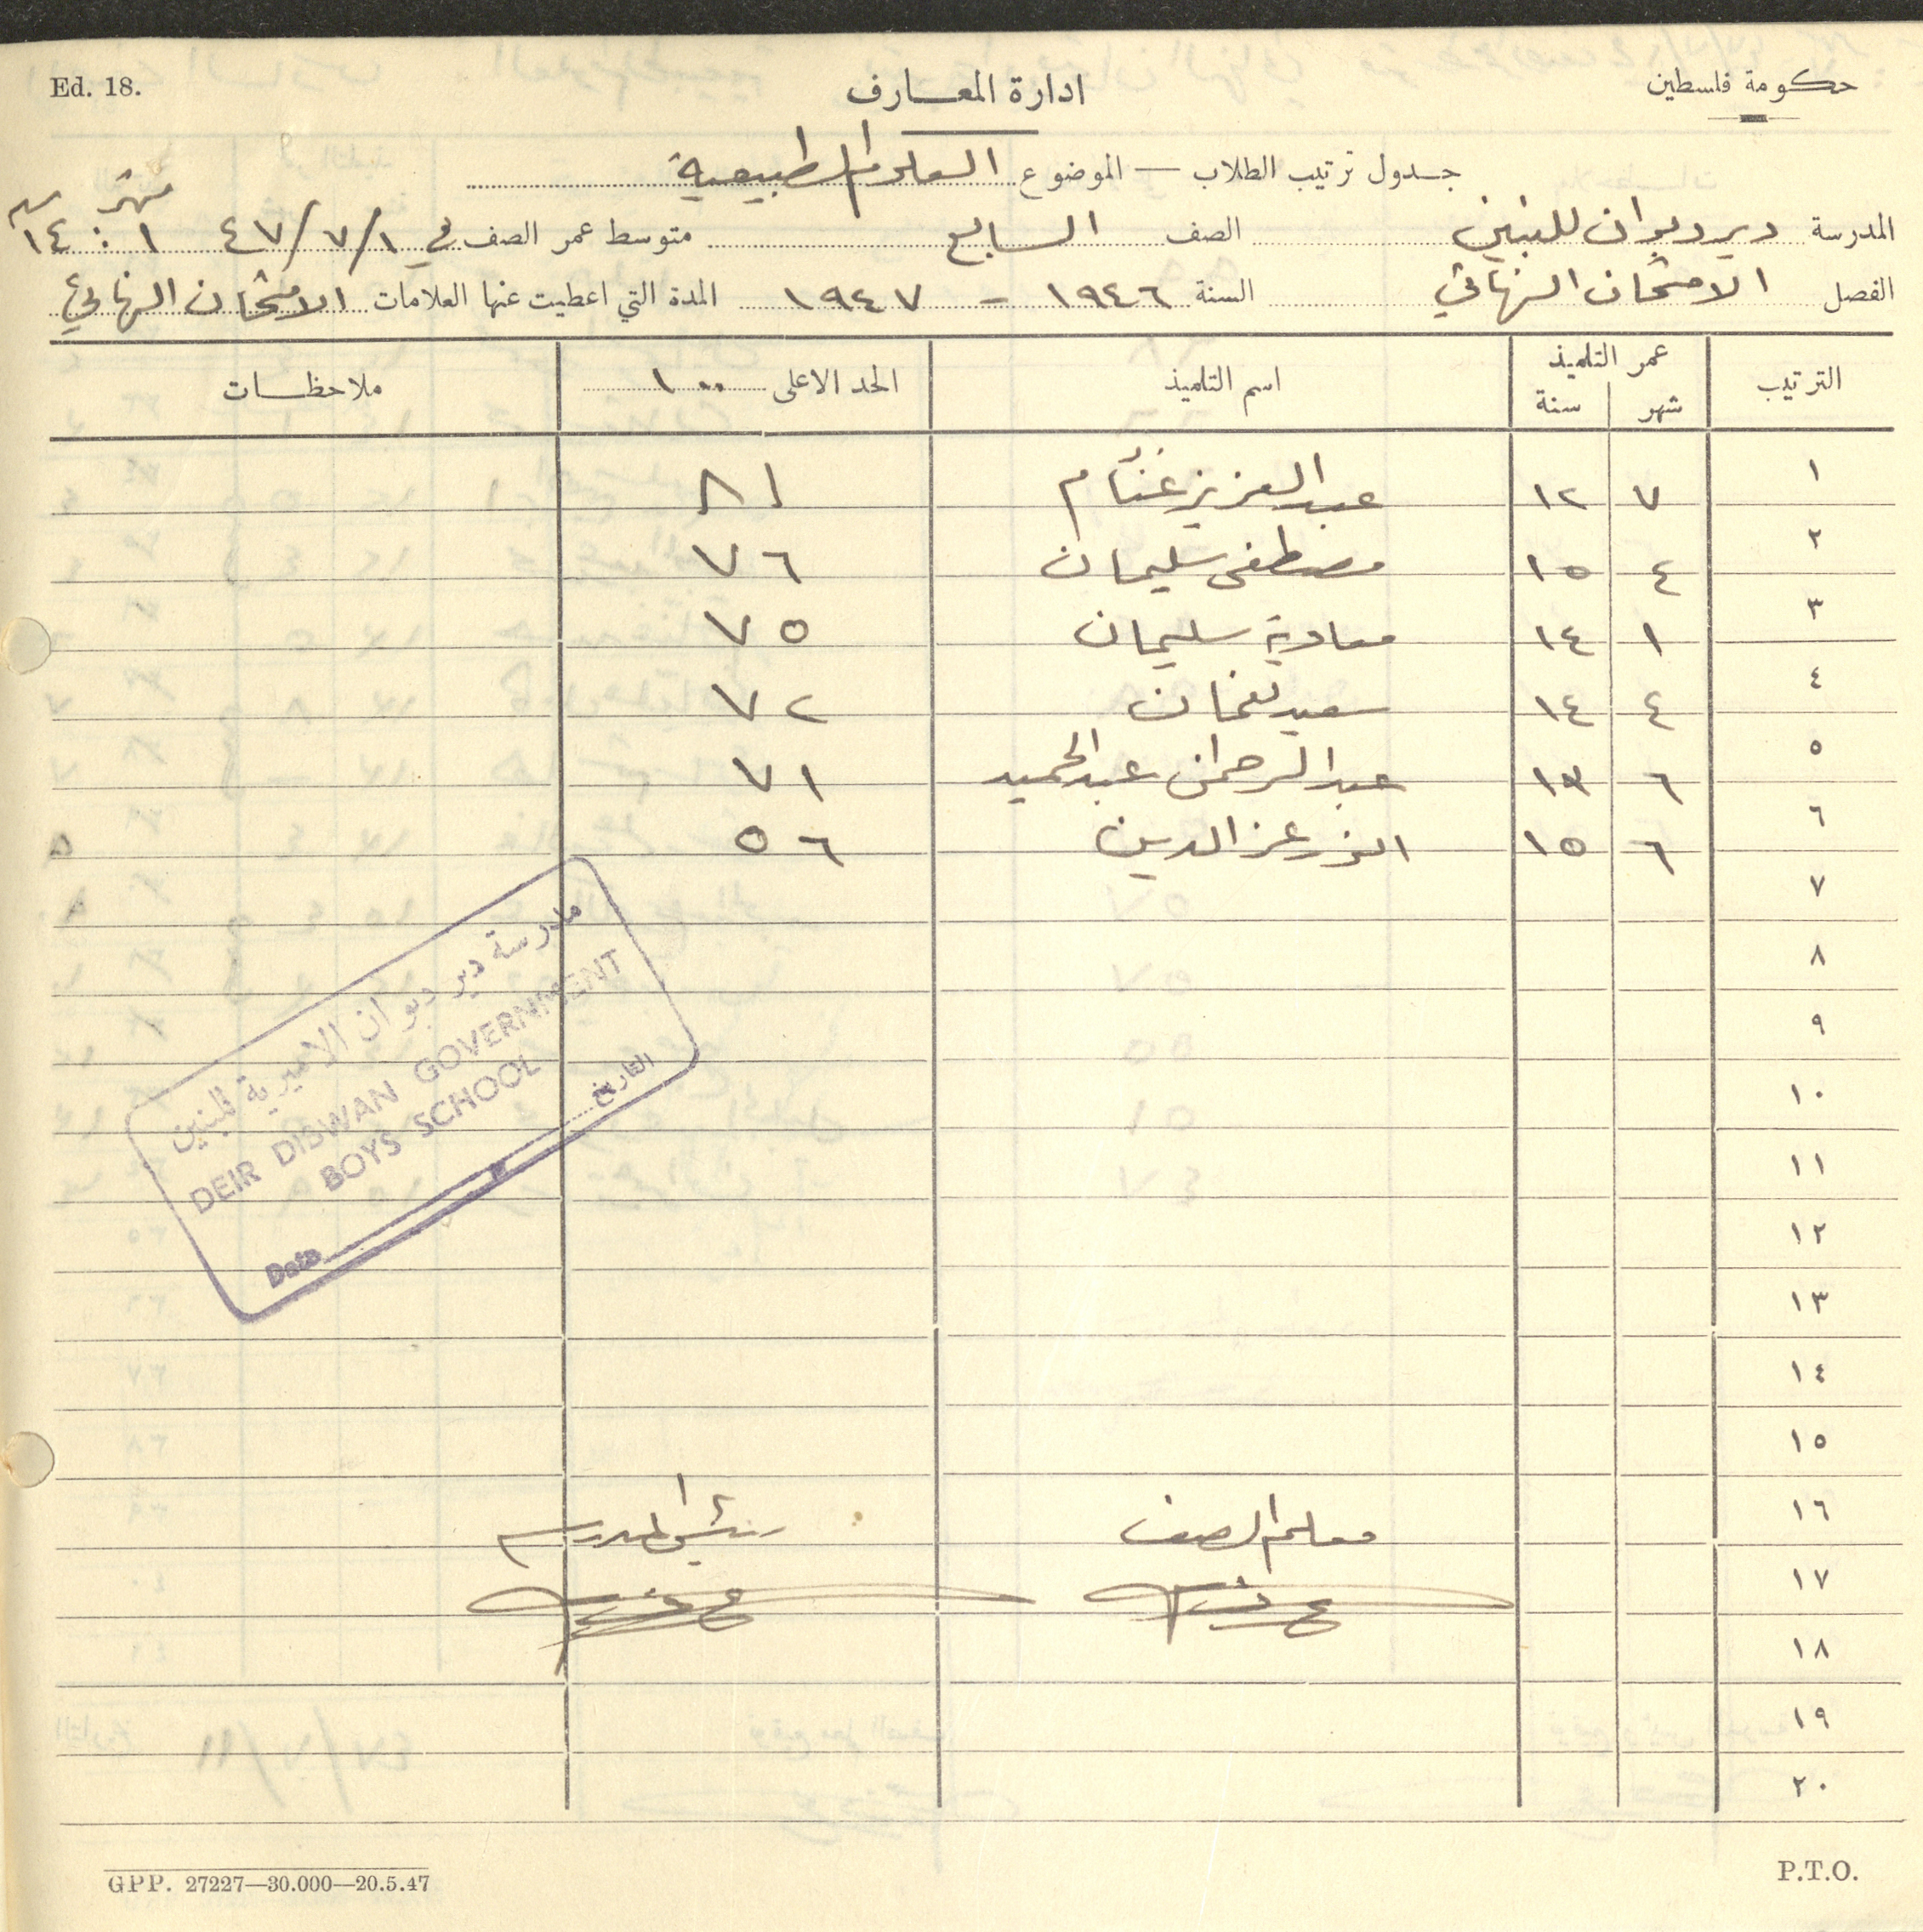 Ed. 18.
ادارة المعارف
حكومة فلسطين
جدول ترتيب الطلاب — الموضوع العلوم الطبيعية
المدرسة دير ديوان للبنين الصف السابع متوسط عمر الصف في ٤٧/٧/١ شهر ١ : ١٤ سنة
الفصل الامتحان النهائي السنة ١٩٤٦ - ١٩٤٧ المدة التي اعطيت عنها العلامات الامتحان النهائي
الترتيب عمر التلميذ اسم التلميذ الحد الاعلى ١٠٠ ملاحظات
شهر سنة
١ ٧ ١٢ عبد العزيز غنّام ٨١
٢ ٤ ١٥ مصطفى سليمان ٧٦
٣ ١ ١٤ معاوية سليمان ٧٥
٤ ٤ ١٤ سعيد نعمان ٧٢
٥ ٦ ١٣ عبد الرحمن عبد الحميد ٧١
٦ ٦ ١٥ عز الدين ٥٦
٧
٨
٩
١٠
١١
١٢
١٣
١٤
١٥
١٦ معلم الصف رئيس المدرسة
١٧
١٨
١٩
٢٠
مدرسة دير ديوان الاميرية للبنين
DEIR DIBWAN GOVERNMENT
BOYS SCHOOL
Date التاريخ
GPP. 27227—30.000—20.5.47
P.T.O.